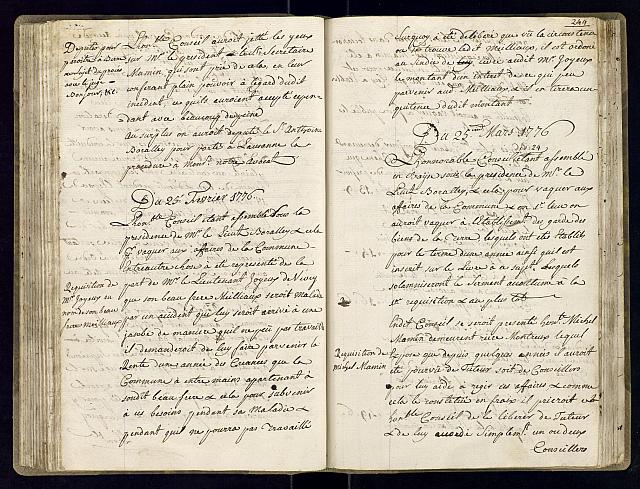 Député pour
Bonjour, &c.
L'hon.ble Conseil auroit jetté les yeux
sur Mr. le president & le Sr. Secretaire
Mamin qui sont prié de cela, en leur
conferant plein pouvoir à l'égard dudit
incident, ce quils auroient accepté cepen-
dant avec beaucoup de peine
Au surplus on auroit deputé le Sr. Antoine
Boralley pour porter à Lausanne la
procedure à Monsr. notre avocat
Du 25e. Fevrier 1776
L'hon.ble Conseil étant assemblé sous la
presidence de Mr. le Lieut.t Boralley & cela
pr. vaquer aux affaires de la Commune
Requisition de
Mr. Joyeux au
nom de son beau
frere Milliaux
Entreautre chose a été representé de la
part de Mr. le Lieutenant Joyeux de Vevey
que son beau frere Milliaux seroit Malade
par un accident qui luy seroit arrivé à une
jambe de maniere qu'il ne peu pas travaille
il demanderoit de luy faire parvenir la
Rente d'une année des Creances que la
Commune à entre mains appartenant à
soudit beau frere & cela pour subvenir
à ces besoins pendant sa Maladie &
pendant qu'il ne pourra pas Travaillé
244
Surquoy a été deliberé que vû la circonstance
ou se trouve ledit Milliaux, il est ordoné
au Sindic de livrer audit Mr. Joyeux
le montant d'un interet de ce qui peu
parvenir audt. Milliaux & il en tirera un
quittence dudit montant
Du 25me. Mars 1776
du 24
L'honnorable Conseil étant assemblé
en Corps sous la presidence de Mr. le
Lieut.t Boralley, & cela pour vaquer aux
affaires de la Commune, & en 1er. lieu on
auroit vaquer à l'Etablissement des garde des
biens de la Terre lesquels ont été établis
pour le terme d'une année ainsi qu'il est
inscrit sur le Livre à ce sujet. Lesquels
solemniseront le Serment accoutumé à la
1re. requisition & au plus tot
Requisition de
Michel Mamin
Endt. Conseil se seroit presenté hon.t Michel
Mamin demeurent riere Montreux lequel
expose que depuis quelques années il auroit
été pourvû de Tuteur soit de Conseillers
pour luy aidé à regir ces affaires & comme
cela le constitue en fraix il prieroit cet
hon.ble Conseil de le liberer de Tuteur
& de luy accordé simplemt. un ou deux
Conseillers